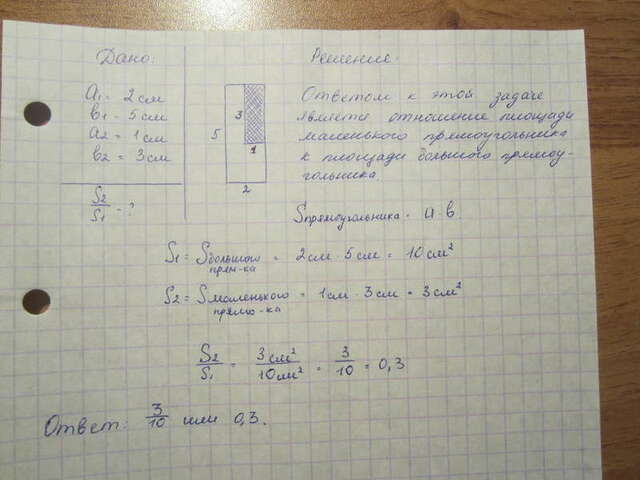 Дано:
a₁ = 2 см
b₁ = 5 см
a₂ = 1 см
b₂ = 3 см
S₂/S₁ - ?
3
5
1
2
Решение:
Ответом к этой задаче
является отношение площади
маленького прямоугольника
к площади большого прямоу-
гольника.
Sпрямоугольника = a · b.
S₁ = Sбольшого прям-ка = 2 см · 5 см = 10 см²
S₂ = Sмаленького прямо-ка = 1 см · 3 см = 3 см²
S₂/S₁ = 3 см²/10 см² = 3/10 = 0,3
Ответ: 3/10 или 0,3.